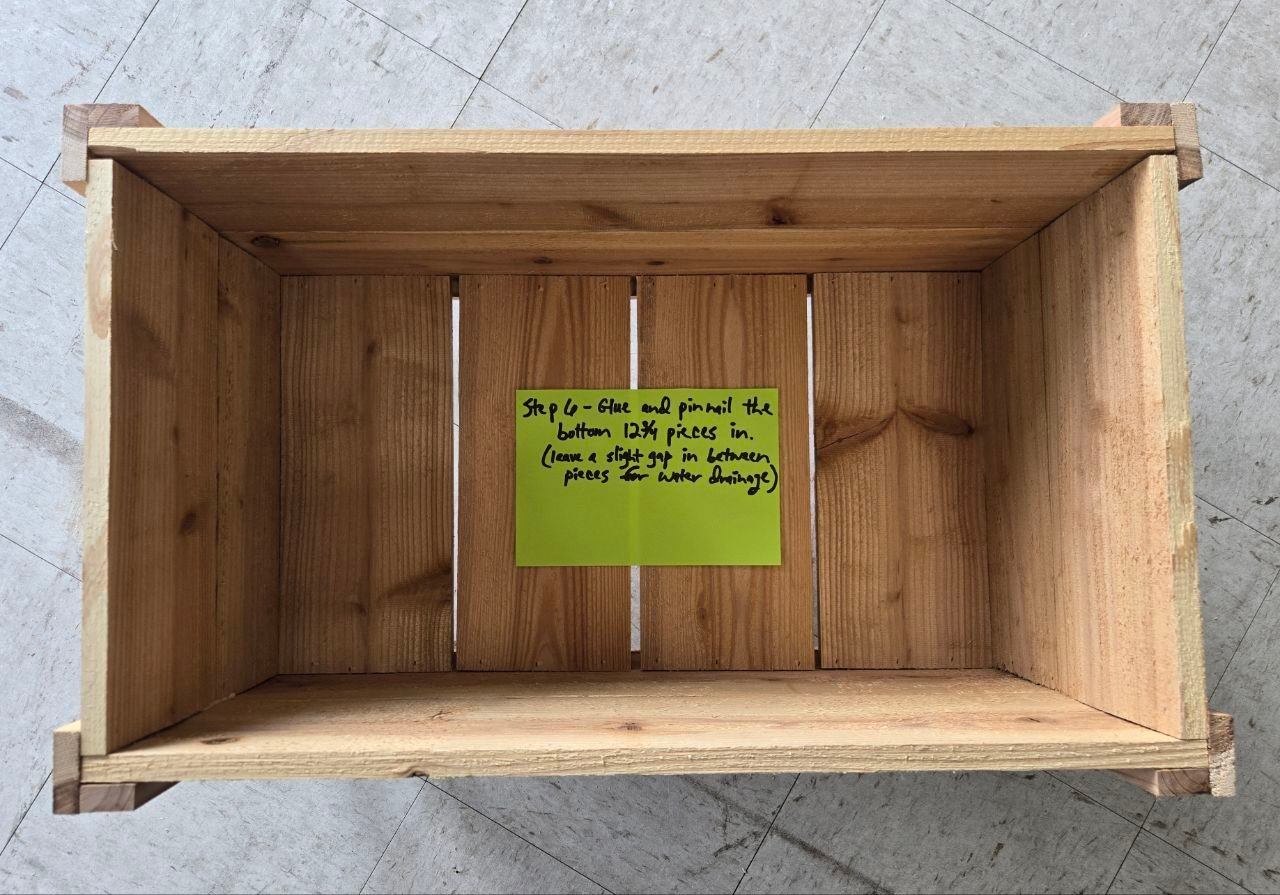 Step 6 - Glue and pin nail the
bottom 12 3/4 pieces in.
(leave a slight gap in between
pieces for water drainage)